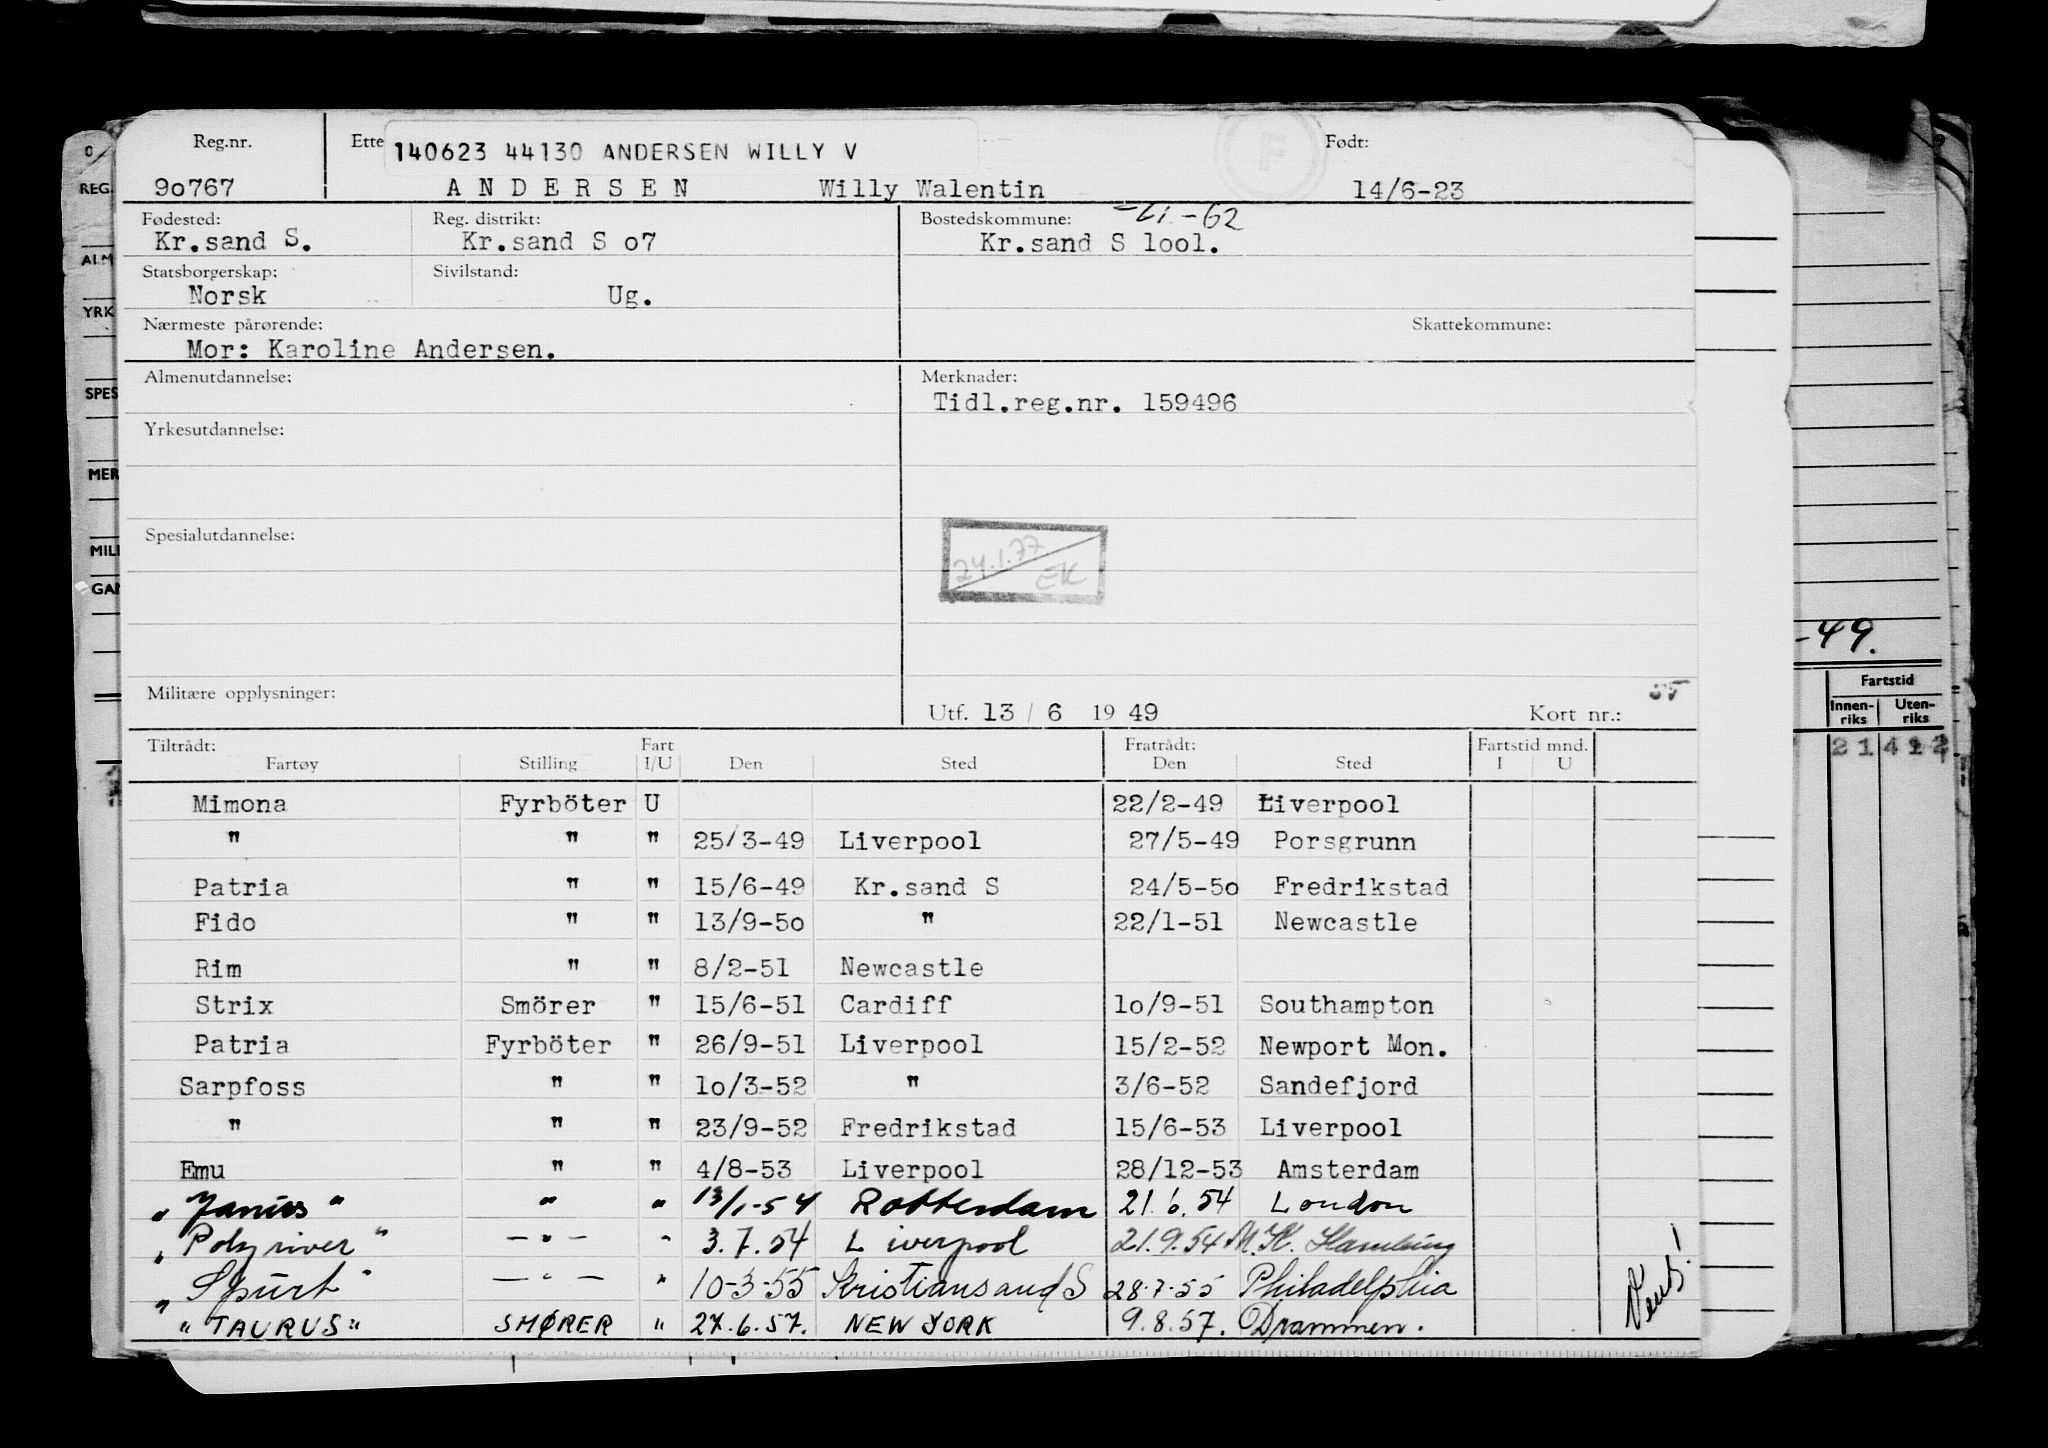 Reg.nr. Ette 140623 44130 ANDERSEN WILLY V F Født:
90767 A N D E R S E N Willy Walentin 14/6-23
Fødested: Reg. distrikt: Bostedskommune: -62
Kr.sand S. Kr.sand S o7 Kr.sand S lool.
Statsborgerskap: Sivilstand:
Norsk Ug.
Nærmeste pårørende: Skattekommune:
Mor: Karoline Andersen.
Almenutdannelse: Merknader:
Tidl.reg.nr. 159496
Yrkesutdannelse:
Spesialutdannelse: 24.1.77 EK
Militære opplysninger:
Utf. 13 / 6 19 49 Kort nr.:
Tiltrådt: Fart Fratrådt: Fartstid mnd.
Fartøy Stilling I/U Den Sted Den Sted I U
Mimona Fyrböter U 22/2-49 Liverpool
" " " 25/3-49 Liverpool 27/5-49 Porsgrunn
Patria " " 15/6-49 Kr.sand S 24/5-5o Fredrikstad
Fido " " 13/9-5o " 22/1-51 Newcastle
Rim " " 8/2-51 Newcastle
Strix Smörer " 15/6-51 Cardiff lo/9-51 Southampton
Patria Fyrböter " 26/9-51 Liverpool 15/2-52 Newport Mon.
Sarpfoss " " lo/3-52 " 3/6-52 Sandefjord
" " " 23/9-52 Fredrikstad 15/6-53 Liverpool
Emu " " 4/8-53 Liverpool 28/12-53 Amsterdam
"Janus" " " 13/1-54 Rotterdam 21.6.54 London
"Polyriver" -"- " 3.7.54 Liverpool 21.9.54 M.K. Hamburg
"Spurt" -"- " 10-3-55 Kristiansand S 28.7.55 Philadelphia
"TAURUS" SMØRER " 27.6.57. NEW YORK 9.8.57. Drammen.
Vend!
REG.
ALM
YRK
SPES
MER
MILI
GAN
-49.
Fartstid
Innen-riks Uten-riks
21 412